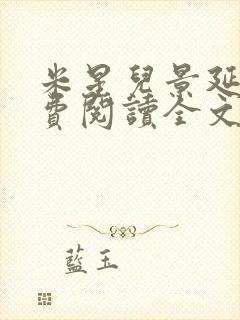 米星兒景延
費閱讀全文
藍玉